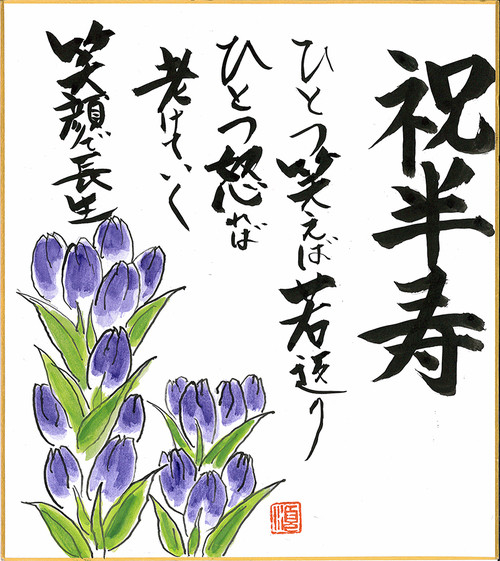 祝半寿
ひとつ笑えば若返り
ひとつ怒れば
老けていく
笑顔で長生